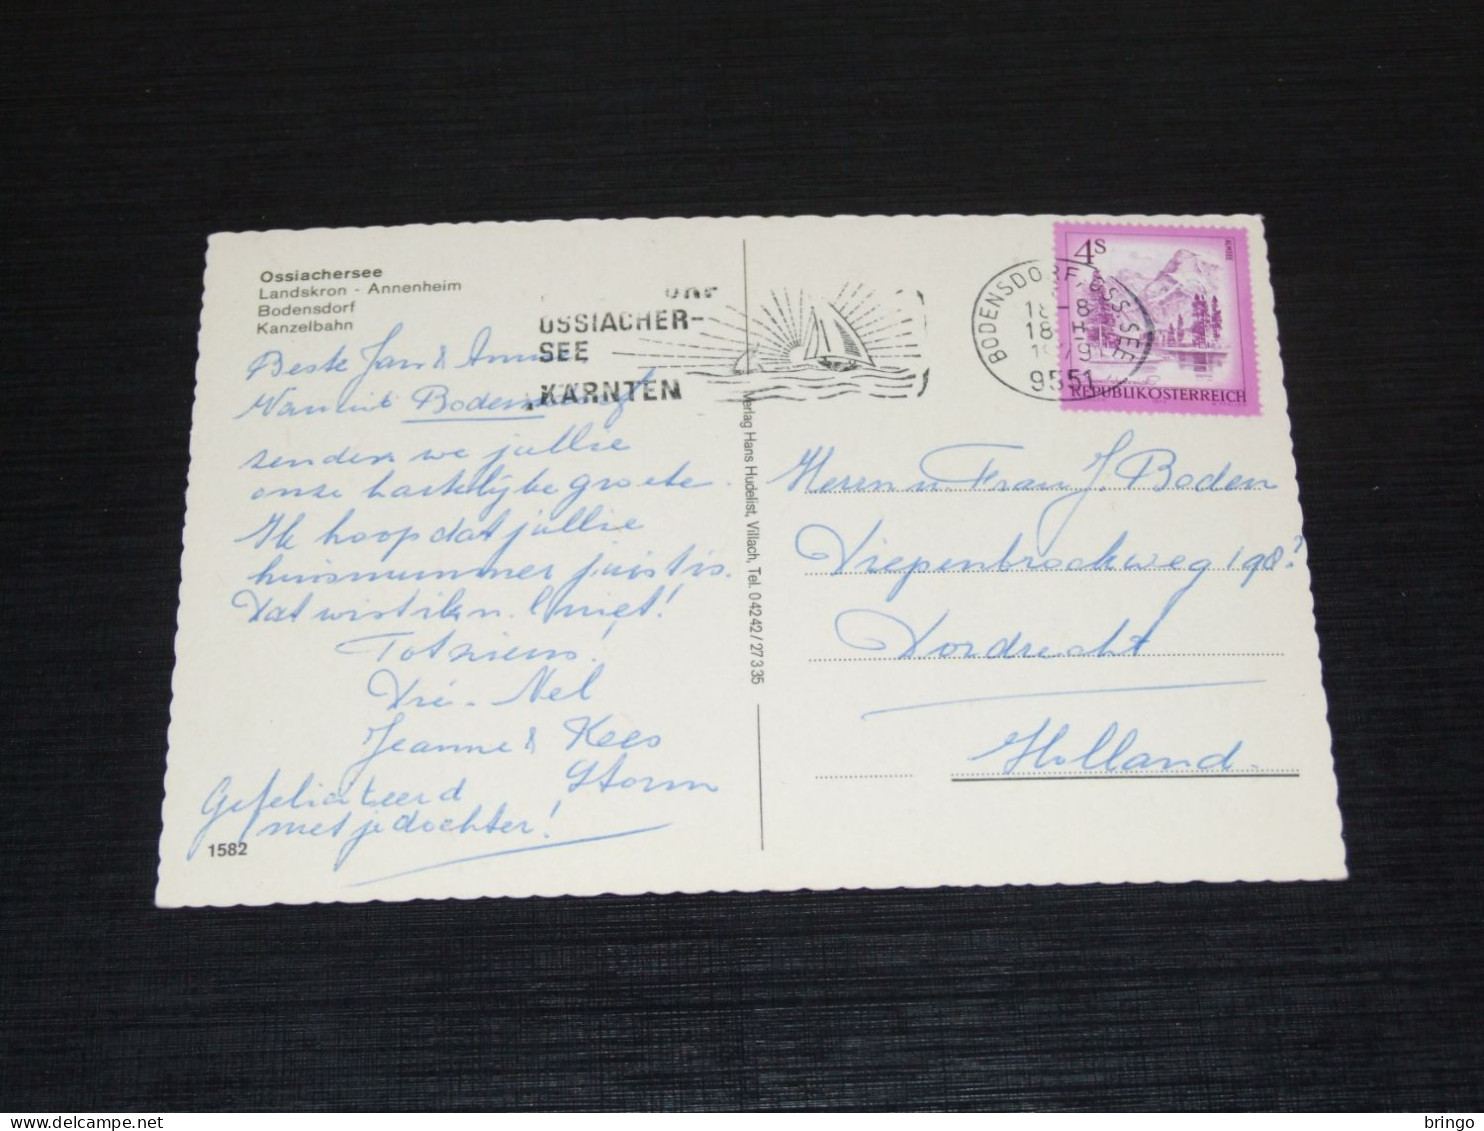 Ossiachersee
Landskron - Annenheim
Bodensdorf
Kanzelbahn
Beste Jan & Annie
Vanuit Bodensdorf
zenden we jullie
onze hartelijke groete.
Ik hoop dat jullie
huisnummer juist is.
Dat wist ik n.l. niet!
Tot ziens.
Dré - Nel
Jeanne & Kees
Storm
Gefeliciteerd
met je dochter!
1582
OSSIACHER-
SEE
KÄRNTEN
Verlag Hans Hudelist, Villach, Tel. 04242/27335
BODENSDORF, OSS. SEE
18-8
18-H
1979
9551
4S
ALMSEE
REPUBLIK ÖSTERREICH
Herrn u. Frau J. Boden
Diepenbrockweg 198?
Dordrecht
Holland
bringo
delcampe.net